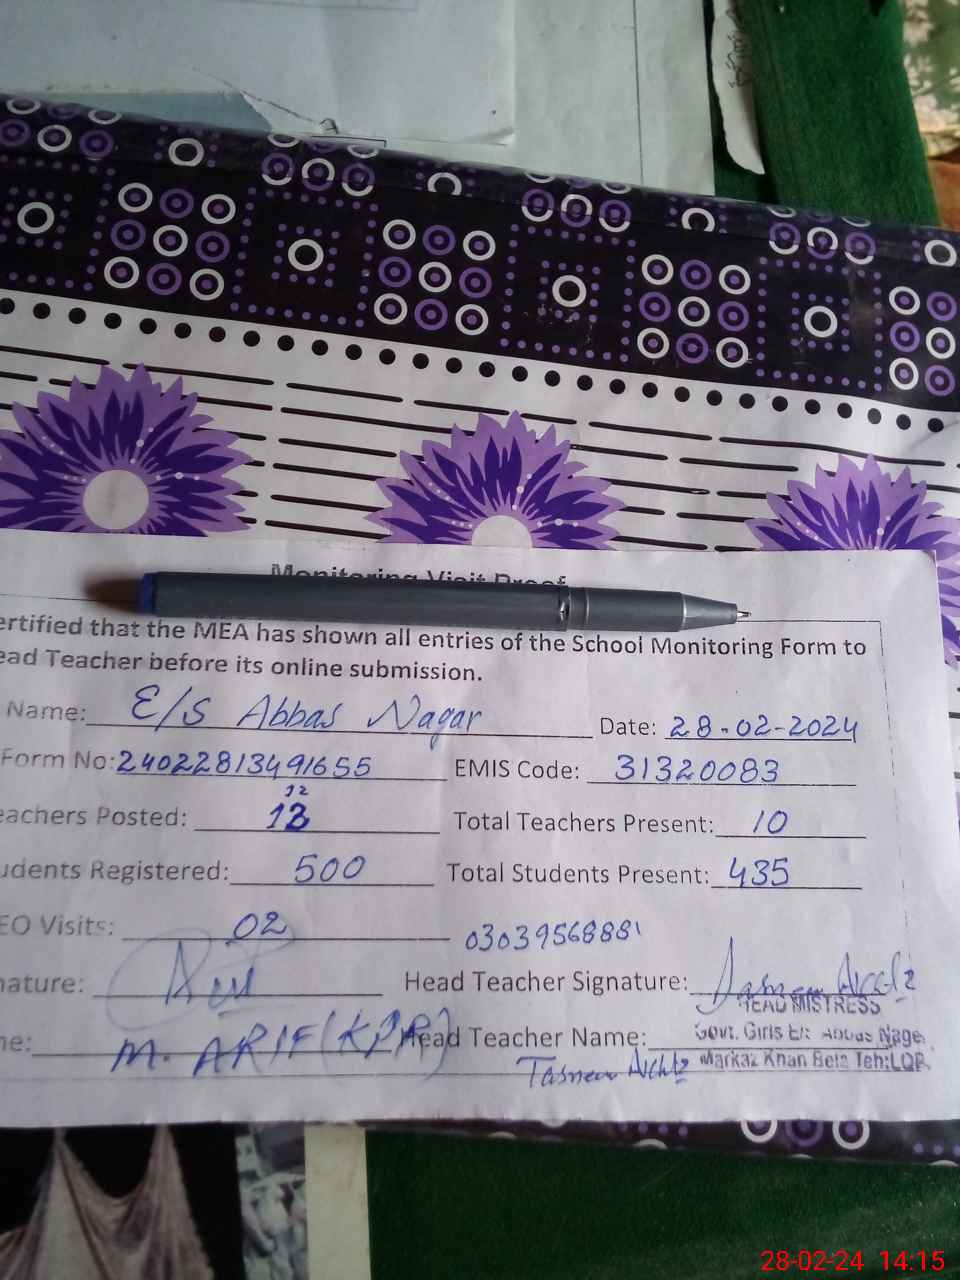 Monitoring Visit Proof
ertified that the MEA has shown all entries of the School Monitoring Form to
ead Teacher before its online submission.
Name: E/S Abbas Nagar Date: 28-02-2024
Form No: 24022813491655 EMIS Code: 31320083
12
eachers Posted: 13 Total Teachers Present: 10
udents Registered: 500 Total Students Present: 435
EO Visits: 02 03039568881
nature: Head Teacher Signature:
HEAD MISTRESS
ne: M. ARIF (KPR) Head Teacher Name: Govt. Girls E/S Abbas Nagar
Markaz Khan Bela Teh:LQP
28-02-24 14:15